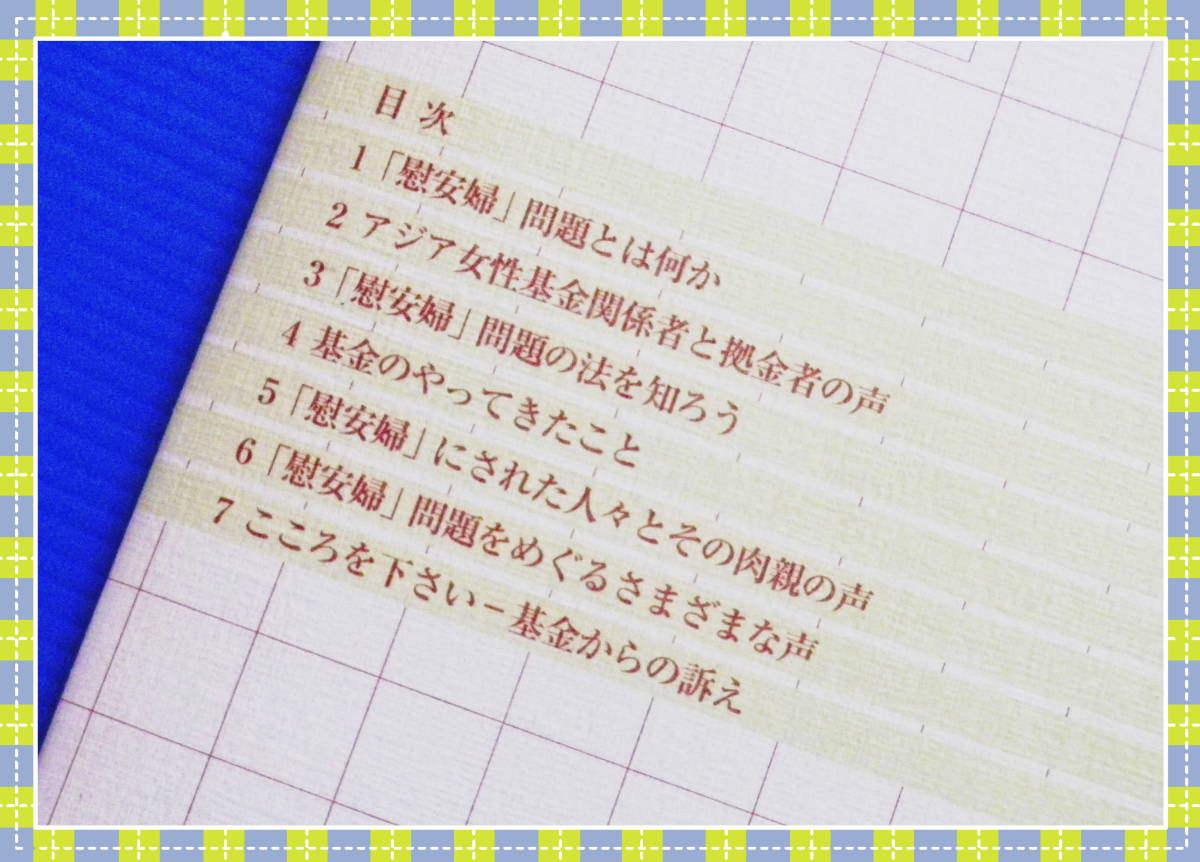 目次
1「慰安婦」問題とは何か
2 アジア女性基金関係者と拠金者の声
3「慰安婦」問題の法を知ろう
4 基金のやってきたこと
5「慰安婦」にされた人々とその肉親の声
6「慰安婦」問題をめぐるさまざまな声
7 こころを下さい－基金からの訴え